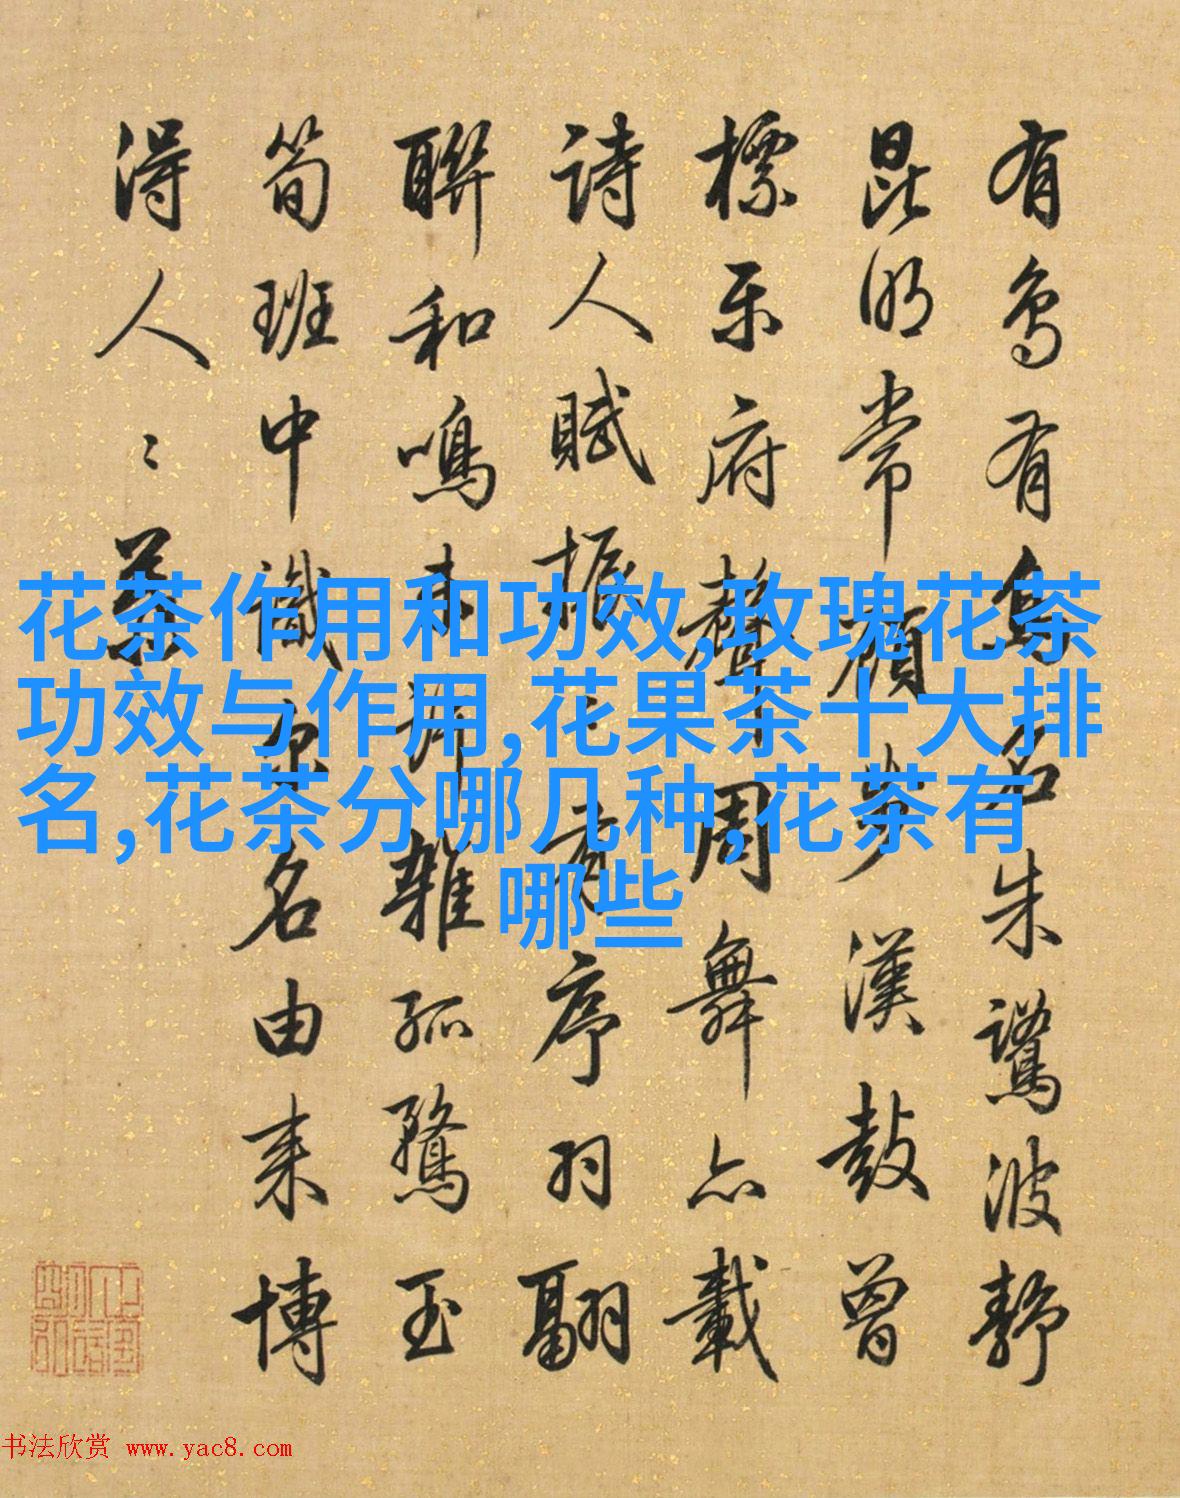 有鳥有鳥名朱鷺波静
昆明常顧步漢鼓曾
標樂府聲周舞亦載
詩人賦振〻有序羽翮
聯和鳴未許雜孤鶩玉
筍班中識名由来博
得人〻
花茶作用和功效,玫瑰花茶
功效与作用,花果茶十大排
名,花茶分哪几种,花茶有
哪些
书法欣赏 www.yac8.com